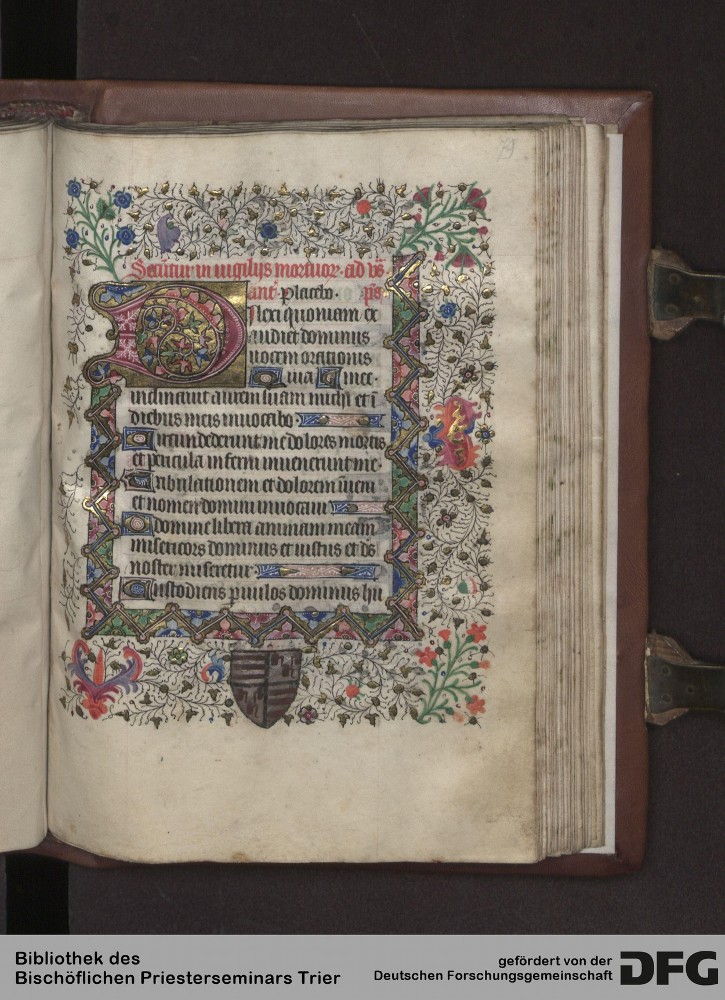 79
Secūtur in uigilijs mortuoꝝ ad vs̄
ant̄ Placebo. ps̄
Dilexi quoniam ex
audiet dominus
uocem orationis
mee. Quia
inclinauit aurem suam michi et ī
diebus meis inuocabo.
Circundederunt me dolores mortis
et pericula inferni inuenerunt me
Tribulationem et dolorem īueni
et nomen domini inuocaui
O domine libera animam meam
misericors dominus et iustus et ds̄
noster miseretur.
Custodiens paruulos dominus hu
Bibliothek des
Bischöflichen Priesterseminars Trier
gefördert von der
Deutschen Forschungsgemeinschaft
DFG